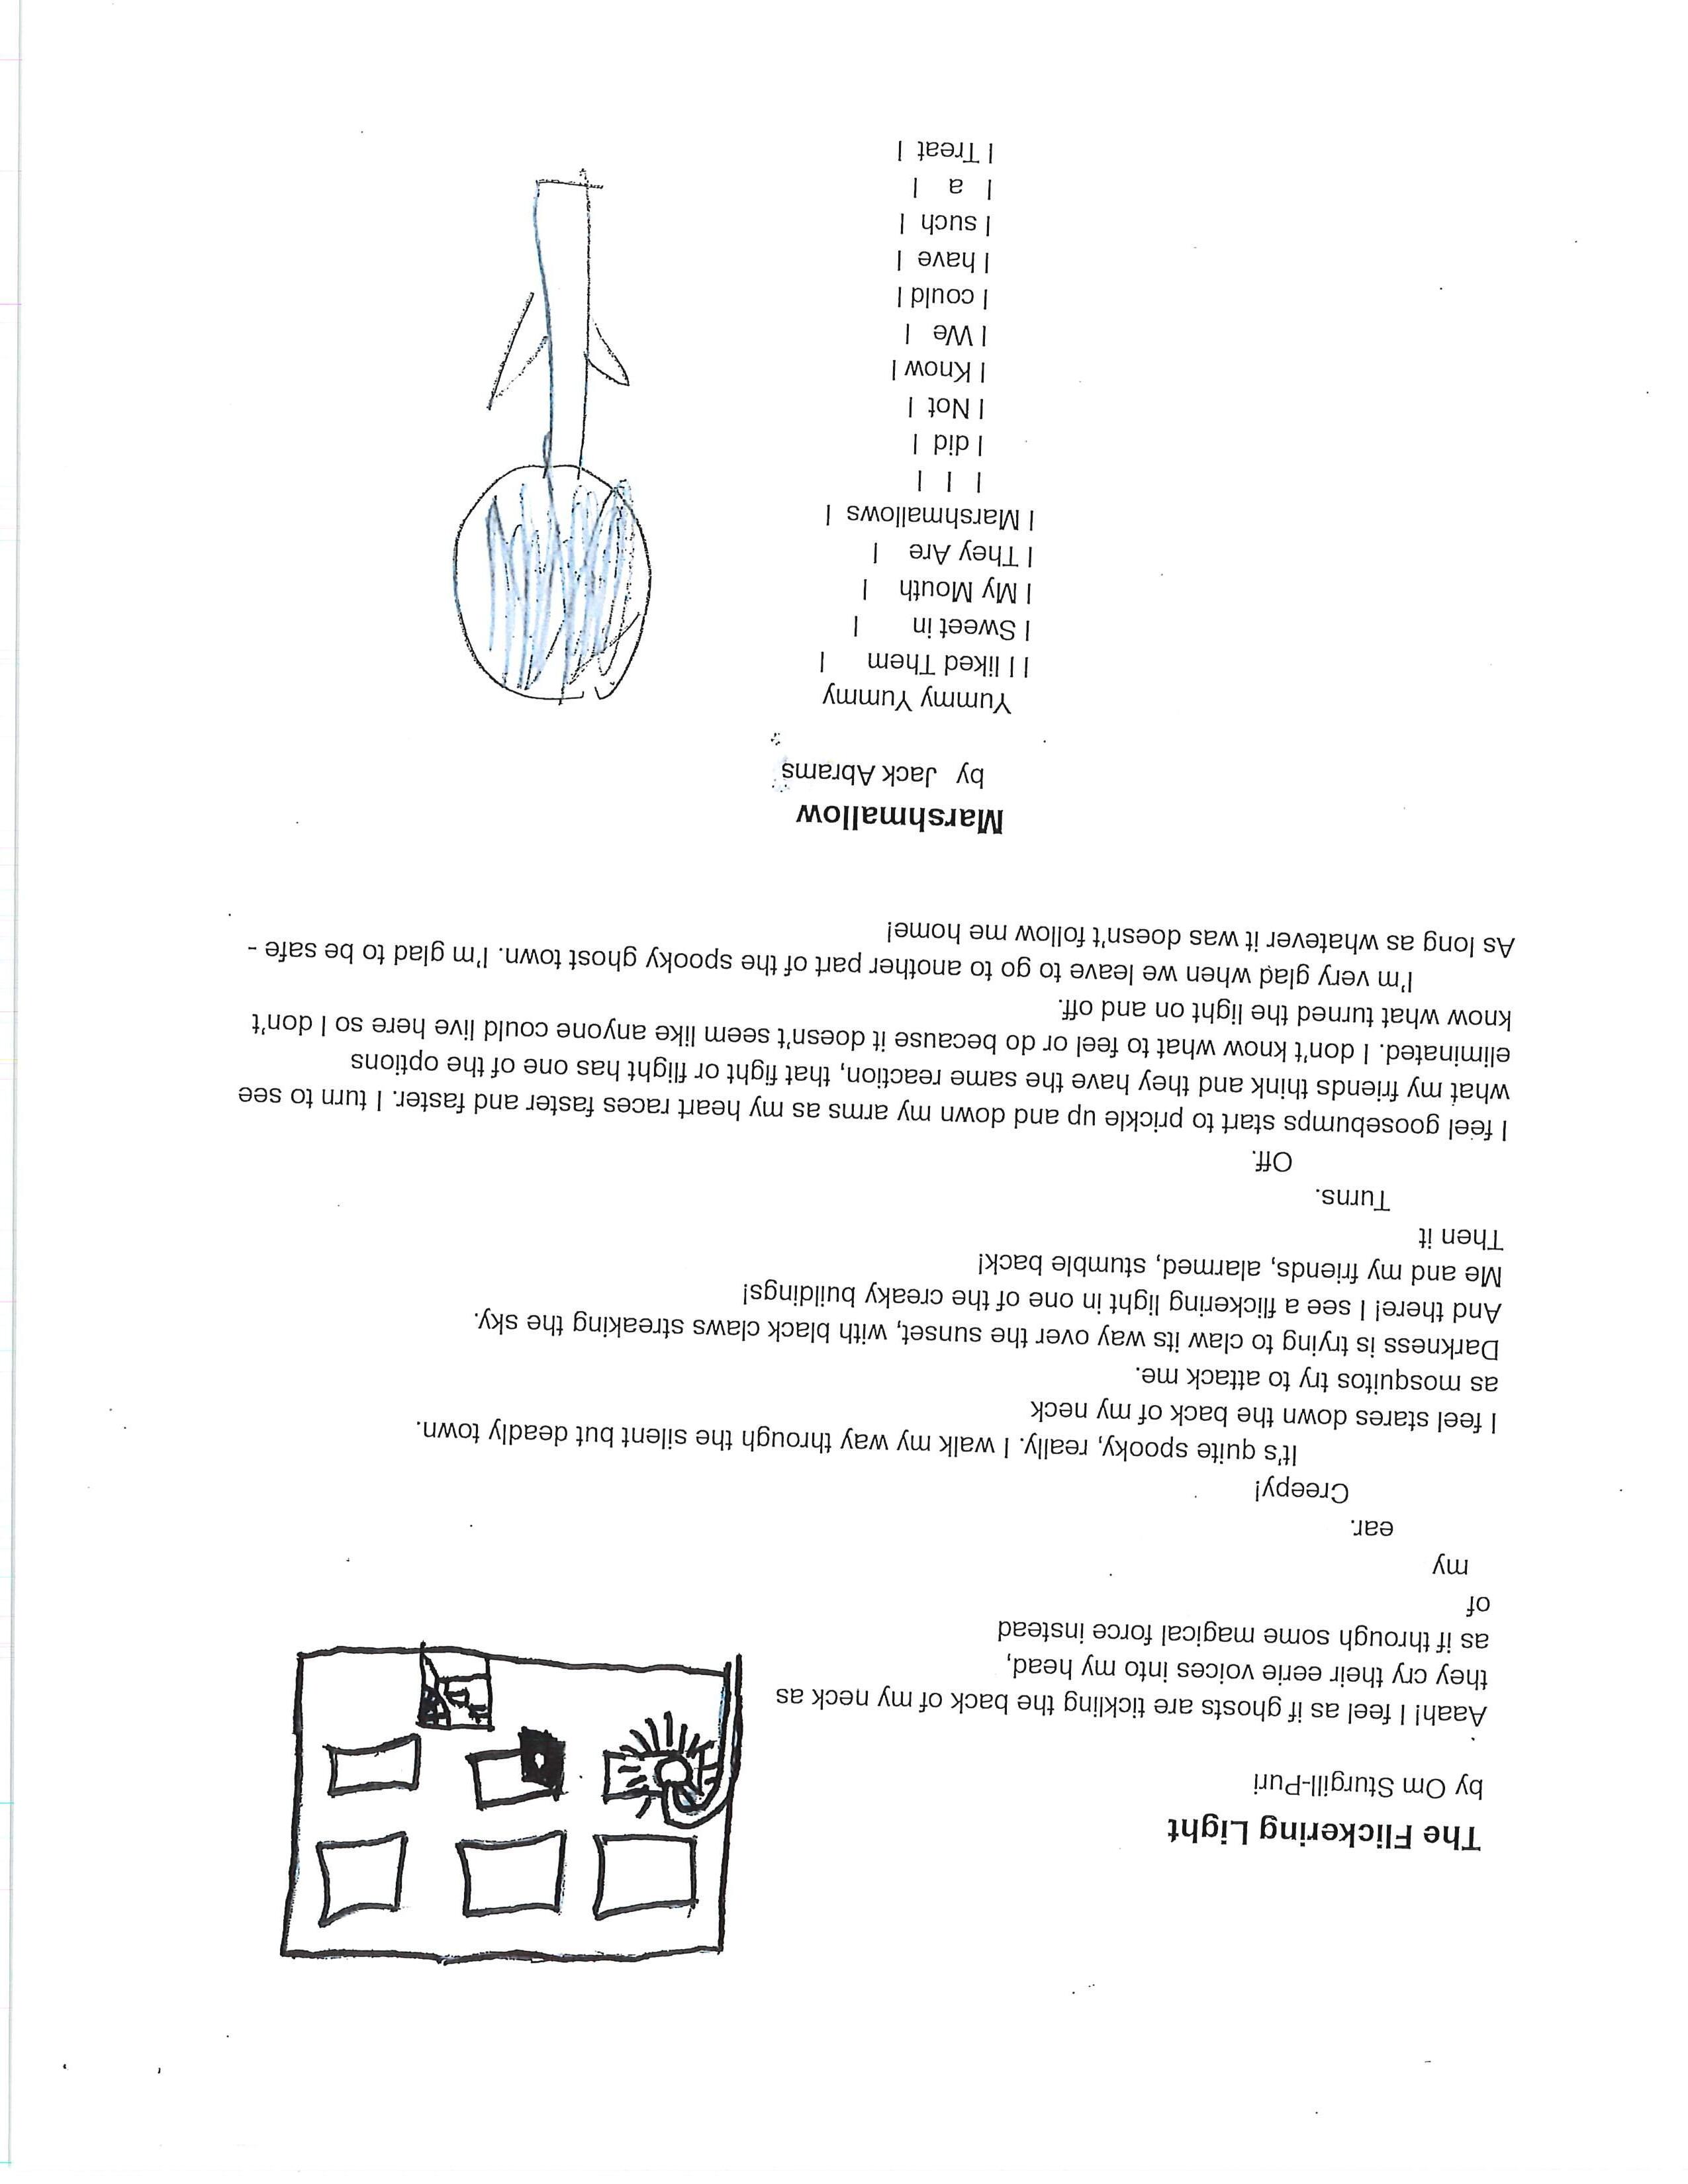 The Flickering Light
by Om Sturgill-Puri
Aaah! I feel as if ghosts are tickling the back of my neck as
they cry their eerie voices into my head,
as if through some magical force instead
of
my
ear.
Creepy!
It's quite spooky, really. I walk my way through the silent but deadly town.
I feel stares down the back of my neck
as mosquitos try to attack me.
Darkness is trying to claw its way over the sunset, with black claws streaking the sky.
And there! I see a flickering light in one of the creaky buildings!
Me and my friends, alarmed, stumble back!
Then it
Turns.
Off.
I feel goosebumps start to prickle up and down my arms as my heart races faster and faster. I turn to see
what my friends think and they have the same reaction, that fight or flight has one of the options
eliminated. I don't know what to feel or do because it doesn't seem like anyone could live here so I don't
know what turned the light on and off.
I'm very glad when we leave to go to another part of the spooky ghost town. I'm glad to be safe -
As long as whatever it was doesn't follow me home!
Marshmallow
by Jack Abrams
Yummy Yummy
I I liked Them I
I Sweet in I
I My Mouth I
I They Are I
I Marshmallows I
I I I
I did I
I Not I
I Know I
I We I
I could I
I have I
I such I
I a I
I Treat I